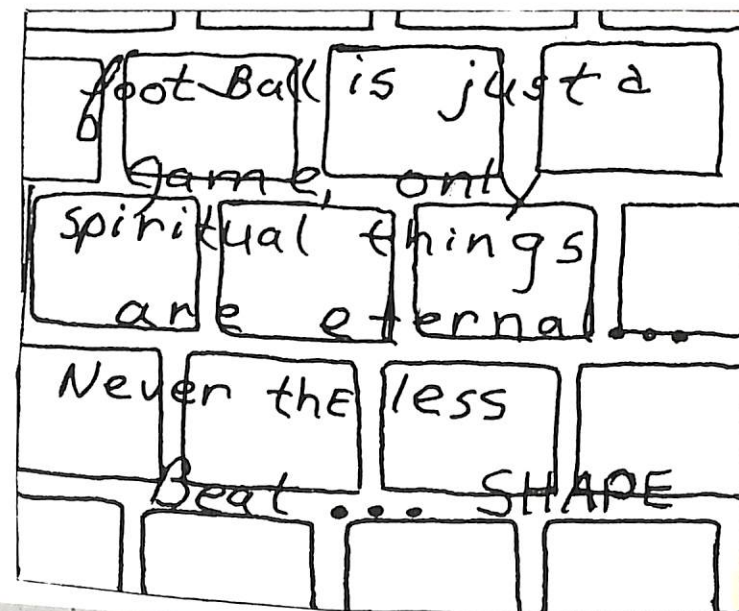 foot Ball is just a
game, only
spiritual things
are eternal...
Never thE less
Beat ... SHAPE